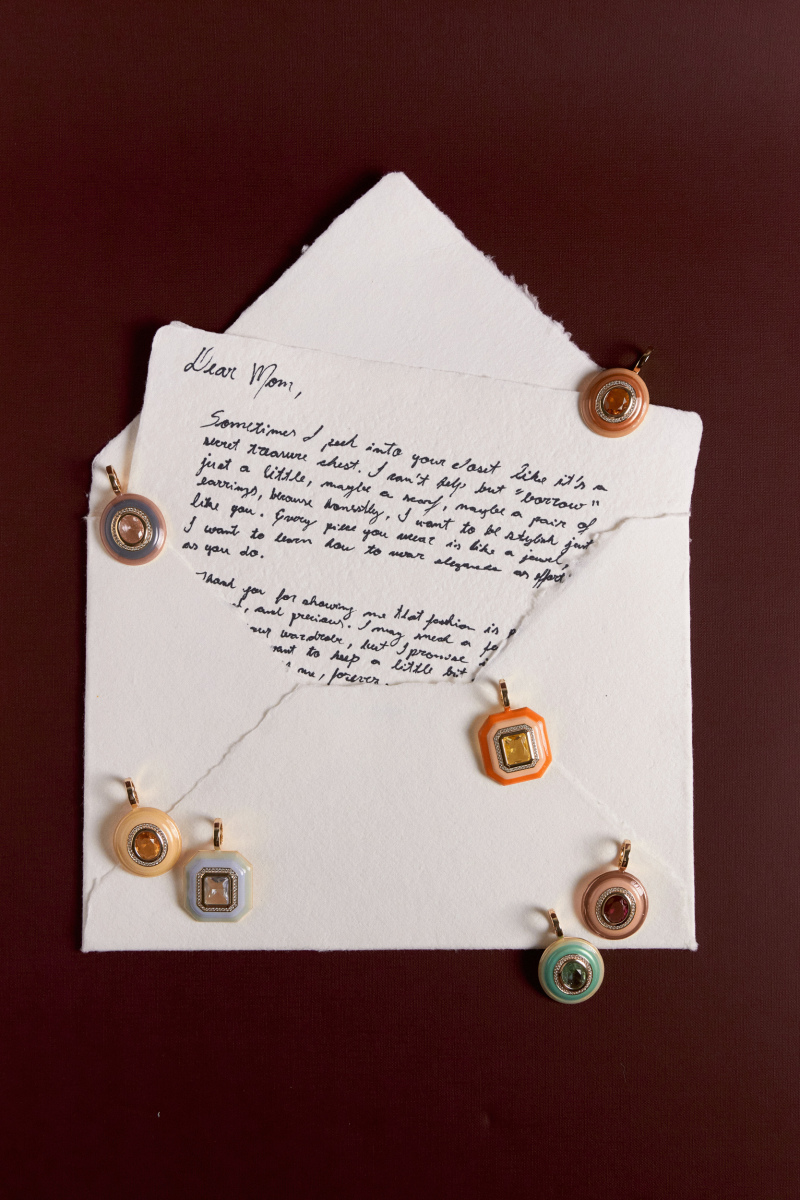 Dear Mom,
Sometimes I peek into your closet like it's a
secret treasure chest. I can't help but "borrow"
just a little, maybe a scarf, maybe a pair of
earrings, because honestly, I want to be stylish just
like you. Every piece you wear is like a jewel,
I want to learn how to wear elegance as effort
as you do.
Thank you for showing me that fashion is
, and precious. I may sneak a fe
our wardrobe, but I promise
ant to keep a little bit
s me, forever.